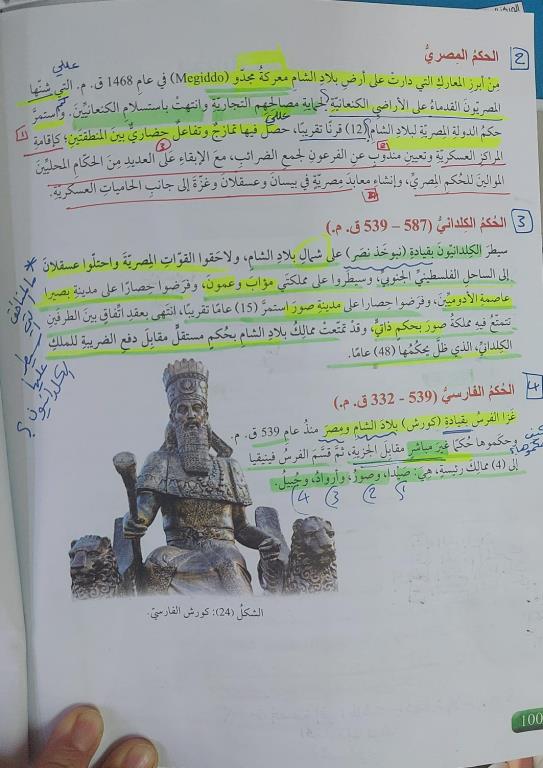 2 الحكمُ المِصريُّ
عللي
مِن أبرزِ المعاركِ التي دارتْ على أرضِ بلادِ الشامِ معركةُ مجدّو (Megiddo) في عامِ 1468 ق. م. التي شنّها
المصريّونَ القدماءُ على الأراضي الكنعانيّةِ لحمايةِ مصالحِهم التجاريّةِ وانتهتْ باستسلامِ الكنعانيّينَ. واستمرَّ
حكمُ الدولةِ المصريّةِ لبلادِ الشامِ (12) قرنًا تقريبًا، حصلَ فيها تمازجٌ وتفاعلٌ حضاريٌّ بينَ المنطقتينِ؛ كإقامةِ
المراكزِ العسكريّةِ وتعيينِ مندوبٍ عن الفرعونِ لجمعِ الضرائبِ، معَ الإبقاءِ على العديدِ مِنَ الحكّامِ المحليّينَ
الموالينَ للحُكمِ المِصريِّ، وإنشاءِ معابدَ مِصريّةٍ في بيسانَ وعسقلانَ وغزّةَ إلى جانبِ الحامياتِ العسكريّةِ.
3 الحُكمُ الكِلدانيُّ (587 – 539 ق. م.)
سيطرَ الكِلدانيّونَ بقيادةِ (نبوخَذ نصّر) على شمالِ بلادِ الشامِ، ولاحَقوا القوّاتِ المِصريّةَ واحتلّوا عسقلانَ
إلى الساحلِ الفلسطينيِّ الجنوبيِّ، وسيطَروا على مملكتَي مؤابَ وعمونَ، وفرَضوا حصارًا على مدينةِ بصيرا
عاصمةِ الأدوميّينَ، وفرَضوا حصارا على مدينةِ صورَ استمرَّ (15) عامًا تقريبًا، انتهى بعقدِ اتّفاقٍ بينَ الطرفينِ
تتمتّعُ فيهِ مملكةُ صورَ بحكمٍ ذاتيٍّ، وقد تمتّعتْ ممالكُ بلادِ الشامِ بحُكمٍ مستقلٍّ مقابلَ دفعِ الضريبةِ للملكِ
الكِلدانيِّ، الذي ظلَّ يحكُمُها (48) عامًا.
* ما المناطق التي سيطر عليها الكلدانيون؟
4 الحُكمُ الفارسيُّ (539 - 332 ق. م.)
غزا الفرسُ بقيادةِ (كورش) بلادَ الشامِ ومِصرَ منذُ عامِ 539 ق. م.
وحكموها حُكمًا غيرَ مباشرٍ مقابلَ الجزيةِ، ثمَّ قسَّمَ الفرسُ فينيقيا
إلى (4) ممالكَ رئيسةٍ، هيَ: صَيدا، وصورُ، وأروادُ، وجُبيلُ.
الشكلُ (24): كورش الفارسيّ.
100